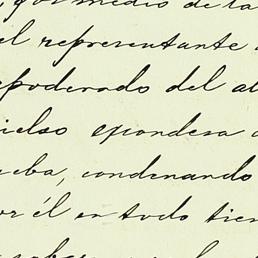 por medio de la
el representante
apoderado del al
ielso
eba, condenando
or él en todo tien